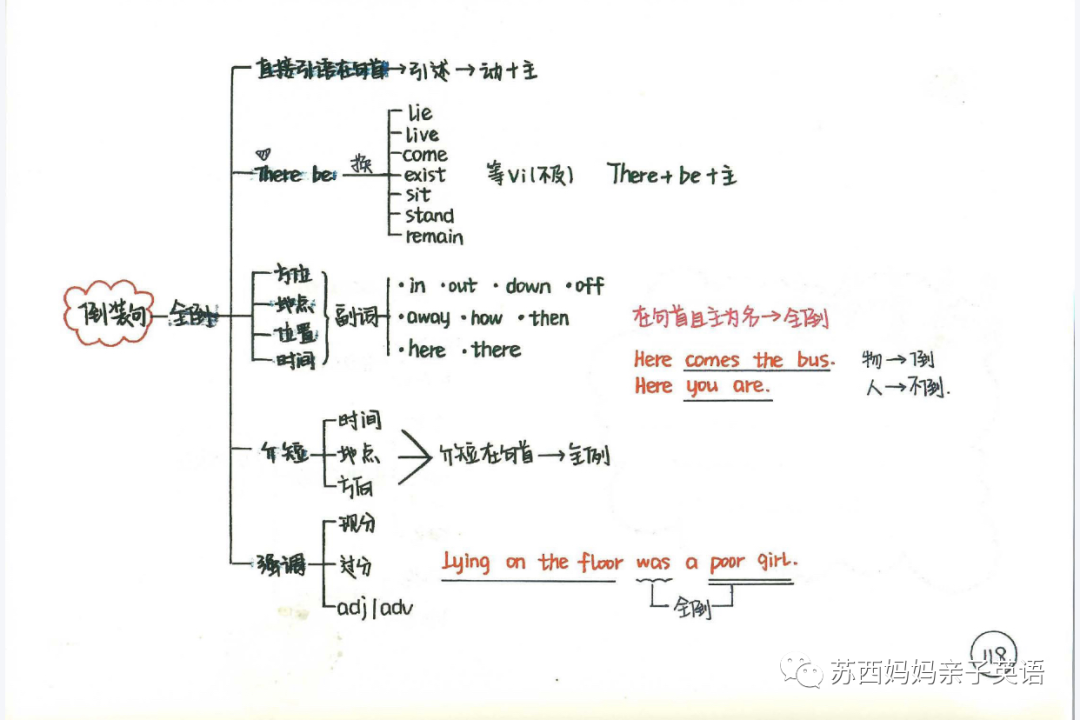 直接引语在句首→引述→动+主
lie
live
come
There be 换 exist 等vi(不及) There+be+主
sit
stand
remain
方位
·in ·out ·down ·off
倒装句 全倒 地点 副词 ·away ·how ·then 在句首且主为名→全倒
位置
·here ·there
时间
Here comes the bus. 物→倒
Here you are. 人→不倒.
时间
介短 地点 介短在句首→全倒
方向
现分
强调 过分 Lying on the floor was a poor girl.
adj/adv 全倒
118
苏西妈妈亲子英语